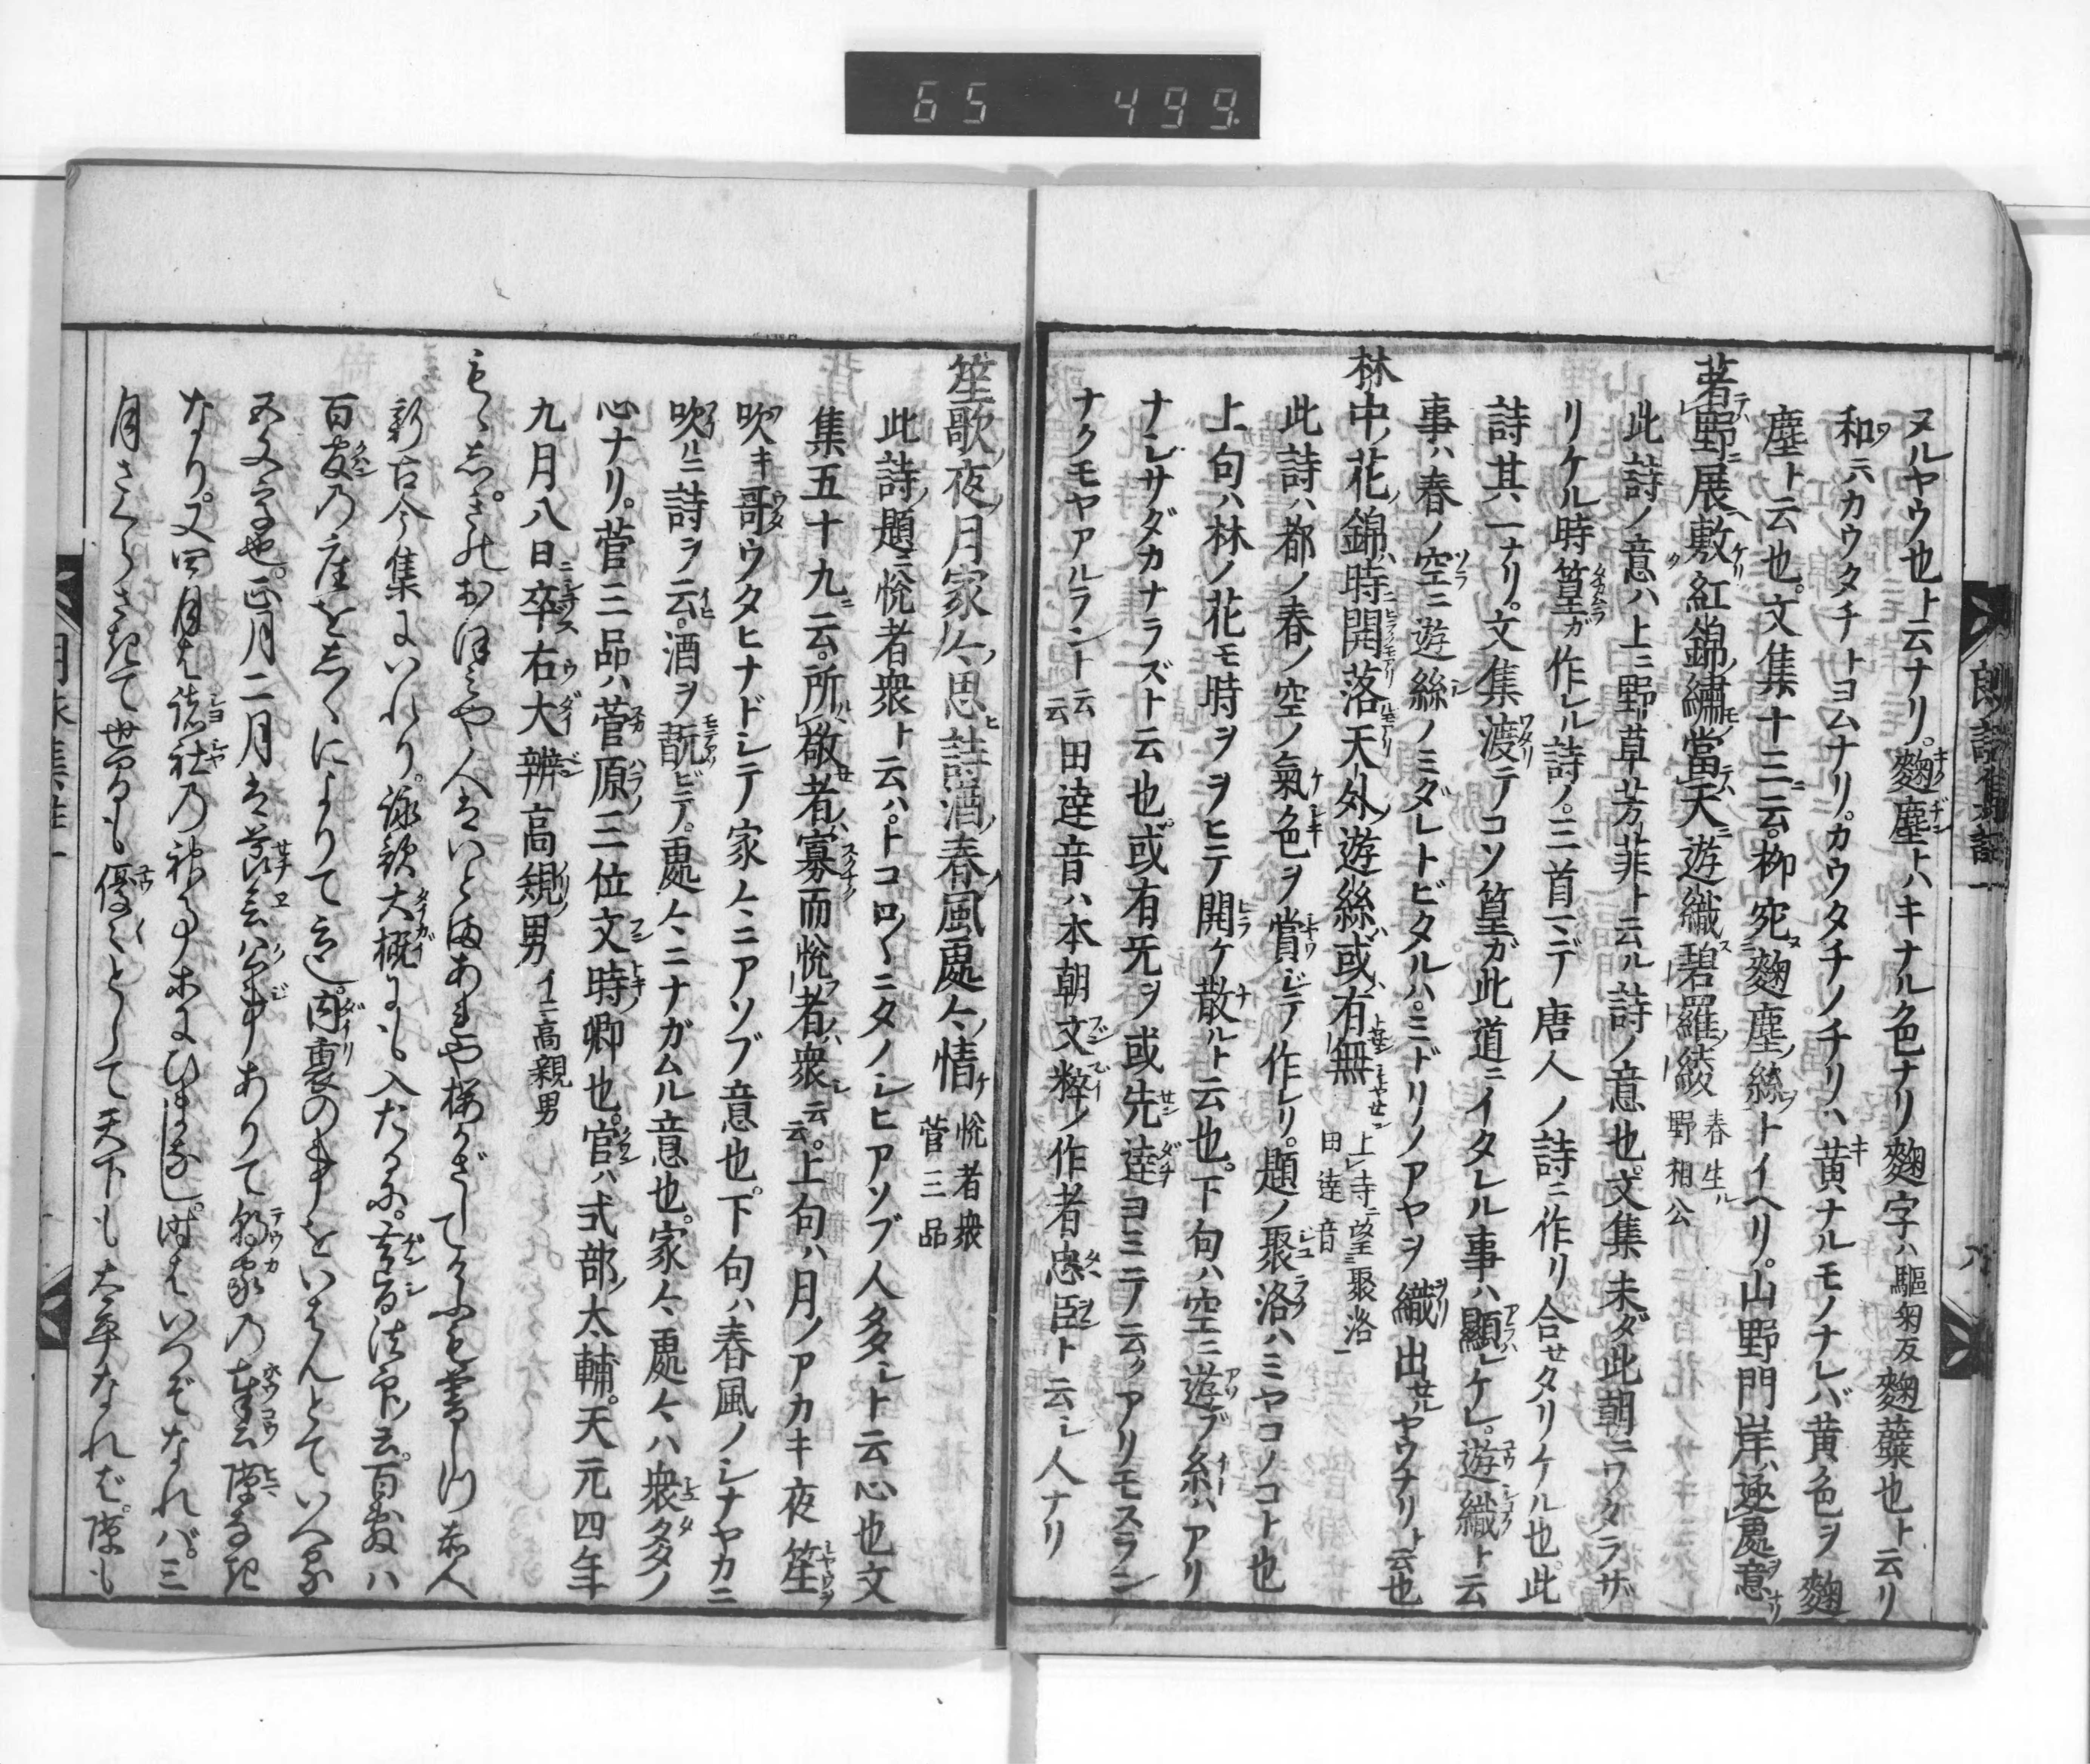 65 499
朗詠集註一
ヌルヤウ也ト云ナリ。麹塵トハキナル色ナリ麹字ハ驅匊反麹蘖也ト云リ
和ニハカウタチトヨムナリ。カウタチノチリハ黄ナルモノナレバ黄色ヲ麹
塵ト云也。文集十三ニ云。柳宛麹塵絲トイヘリ。山野門岸逐處意
著野展敷紅錦繡當天遊織碧羅綾 春生 野相公
此詩ノ意ハ上ニ野草芳菲ト云ル詩ノ意也。文集未ダ此朝ニワタラザ
リケル時篁ガ作レル詩ノ。三首マデ唐人ノ詩ニ作リ合セタリケル也。此
詩其一ナリ。文集渡テコソ篁ガ此道ニイタレル事ハ顯レケレ。遊織ト云
事ハ春ノ空ニ遊絲ノミダレトビタルハ。ミドリノアヤヲ織出セルヤウナリト云也
林中花錦時開落天外遊絲或有無 上寺望聚洛 田達音
此詩ハ都ノ春ノ空ノ氣色ヲ賞シテ作レリ。題ノ聚洛ハミヤコノコト也
上句ハ林ノ花モ時ヲヲヒテ開ケ散ルト云也。下句ハ空ニ遊ブ糸ハアリ
ナシサダカナラズト云也。或有旡ヲ或先達ヨミテ云ク アリモスラン
ナクモヤアルラント云云 田達音ハ本朝文粹ノ作者忠臣ト云シ人ナリ
笙歌夜月家々思詩酒春風處々情 悅者衆 菅三品
此詩題ニ悅者衆ト云ハ。トコロ〳〵ニタノシヒアソブ人多シト云心也文
集五十九ニ云。所敬者寡而悅者衆云云。上句ハ月ノアカキ夜笙
吹キ哥ウタヒナドシテ家々ニアソブ意也。下句ハ春風ノシナヤカニ
吹ルニ詩ヲ云。酒ヲ翫ビテ。處々ニナガムル意也。家々處々ハ衆多ノ
心ナリ。菅三品ハ菅原三位文時卿也。官ハ式部太輔。天元四年
九月八日卒右大辨高規男 イニ高親男
もゝしきのおほみや人はいとまあれや櫻かざしてけふも暮しつ 赤人
新古今集にいれり。詠歌大概にも入たるに。玄旨法印云。百敷ハ
百友の座をしくによりて云。内裏の事をいはんとていへる
五文字也。正月二月は節会公事ありて朝家の奉公隙なき
なり。又四月は諸社の神事等にひまなし。時はいつぞなれバ。三
月さくらさきて世间も優々として天下も太平なれば。隙も